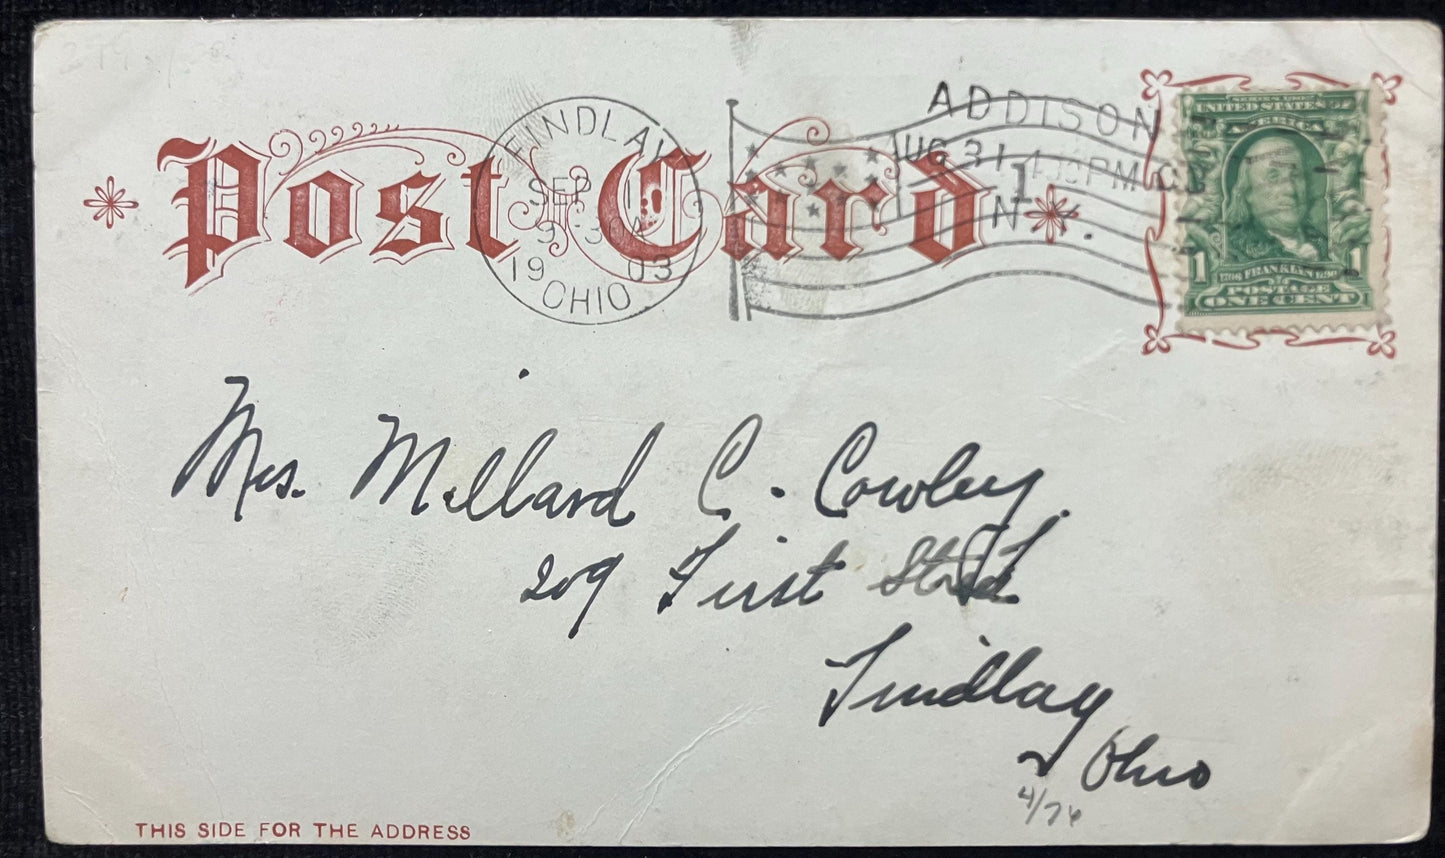 Post Card
FINDLAY
SEP 1
9
19 03
OHIO
ADDISON
AUG 31 PM
1
N.Y.
UNITED STATES OF
AMERICA
1706 FRANKLIN 1790
POSTAGE
1 ONE CENT 1
Mrs. Millard C. Cowley.
209 First Street
Findlay
Ohio
4/74
THIS SIDE FOR THE ADDRESS